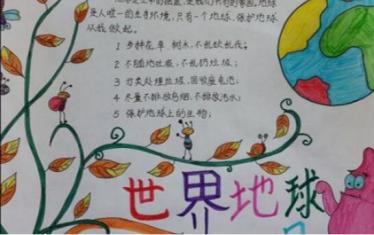 是人唯一的生存环境,只有一个地球,保护地球
从我做起。
1 多种花、草、树木,不乱砍乱伐。
2 不随地吐痰,不乱扔垃圾;
3 分类处理垃圾,回收废电池;
4 尽量不排放乌烟,不排放污水;
5 保护地球上的生物;
世界地球